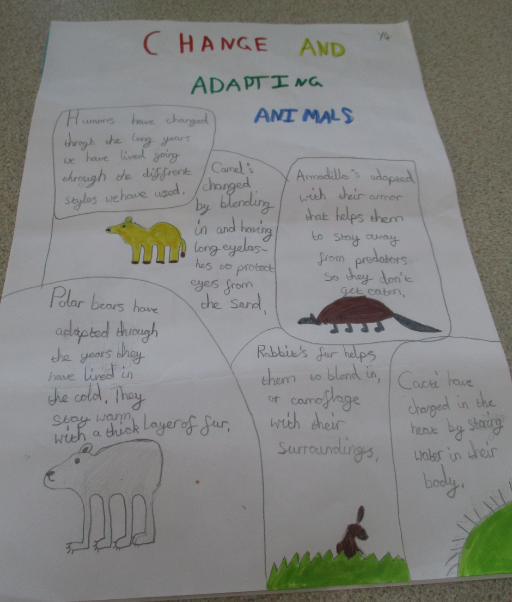 CHANGE AND
Y6
ADAPTING
ANIMALS
Humans have changed
throgh the long years
we have lived going
through the diffrent
styles we have used.
Camel's
changed
by blending
in and having
long eyelas-
hes to protect
eyes from
the sand.
Armadillo's adapted
with their armor
that helps them
to stay away
from predators
so they don't
get eaten.
Polar bears have
adapted through
the years they
have lived in
the cold. They
stay warm
with a thick layer of fur.
Rabbie's fur helps
them to blend in,
or camoflage
with their
surroundings.
Cacti have
changed in the
heat by storing
water in their
body.